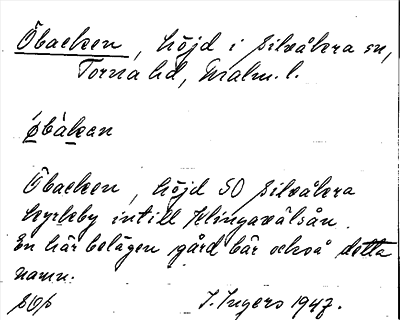 Öbacken, höjd i Silvåkra sn,
Torna hd, Malm. l.
øbàkan
Öbacken, höjd SO Silvåkra
kyrkby intill Klingavälsån.
En här belägen gård bär också detta
namn.
I. Ingers 1947.